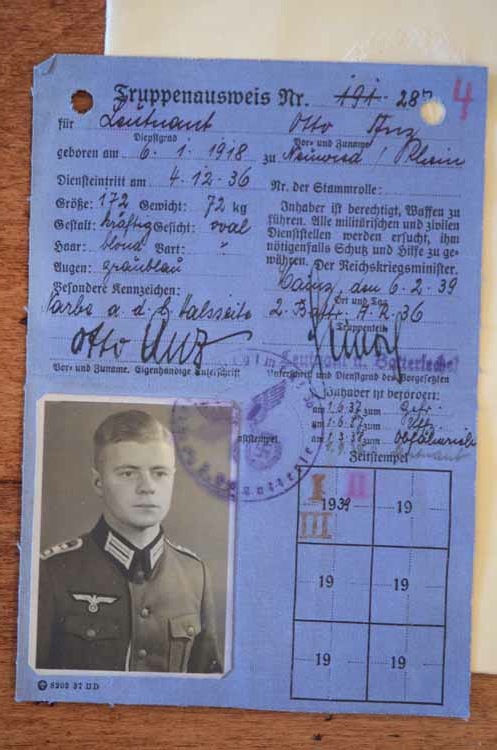 Truppenausweis Nr. 191-287
4
für Leutnant Otto Anz
Dienstgrad Vor- und Zuname
geboren am 6. 1. 1918 zu Neuwied / Rhein
Diensteintritt am 4. 12. 36 Nr. der Stammrolle:
Größe: 172 Gewicht: 72 kg
Gestalt: kräftig Gesicht: oval
Haar: blond Bart: "
Augen: graublau
Besondere Kennzeichen:
Narbe a. d. Halsseite
Otto Anz
Vor- und Zuname. Eigenhändige Unterschrift
Inhaber ist berechtigt, Waffen zu
führen. Alle militärischen und zivilen
Dienststellen werden ersucht, ihm
nötigenfalls Schutz und Hilfe zu ge-
währen. Der Reichskriegsminister.
Mainz, den 6. 2. 39
Ort und Tag
2. Battr. A. R. 36
Truppenteil
Leutnant u. Batteriechef
Unterschrift und Dienstgrad des Vorgesetzten
Inhaber ist befördert:
am 1. 6. 37 zum Gefr.
am zum Uffz.
am 1. 3. 38 zum
Leutnant
Dienststempel
Zeitstempel
I II
1939 19
III
19 19
19 19
8203 37 II D